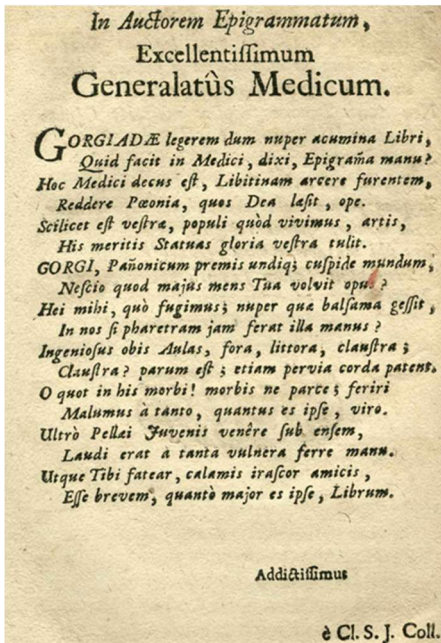 In Auctorem Epigrammatum,
Excellentiſſimum
Generalatûs Medicum.
GORGIADÆ legerem dum nuper acumina Libri,
Quid facit in Medici, dixi, Epigram̃a manu?
Hoc Medici decus eſt, Libitinam arcere furentem,
Reddere Pœonia, quos Dea læſit, ope.
Scilicet eſt veſtræ, populi quòd vivimus, artis,
His meritis Statuas gloria veſtra tulit.
GORGI, Pañonicum premis undiq; cuſpide mundum,
Neſcio quod majus mens Tua volvit opus?
Hei mihi, quò fugimus; nuper quæ balſama geſſit,
In nos ſi pharetram jam ferat illa manus?
Ingenioſus obis Aulas, fora, littora, clauſtra;
Clauſtra? parum eſt; etiam pervia corda patent.
O quot in his morbi! morbis ne parce; feriri
Malumus à tanto, quantus es ipſe, viro.
Ultrò Pellæi Juvenis venêre ſub enſem,
Laudi erat à tantâ vulnera ferre manu.
Utque Tibi fatear, calamis iraſcor amicis,
Eſſe brevem, quantò major es ipſe, Librum.
Addictiſſimus
è Cl. S. J. Coll.